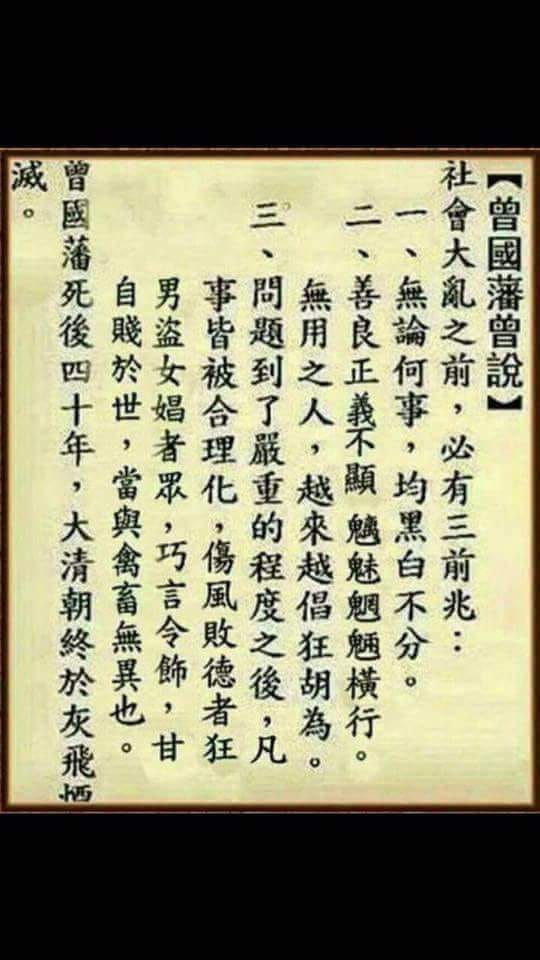 【曾國藩曾說】
社會大亂之前，必有三前兆：
一、無論何事，均黑白不分。
二、善良正義不顯 魑魅魍魎橫行。
無用之人，越來越倡狂胡為。
三、問題到了嚴重的程度之後，凡
事皆被合理化，傷風敗德者狂
男盜女娼者眾，巧言令飾，甘
自賤於世，當與禽畜無異也。
曾國藩死後四十年，大清朝終於灰飛煙
滅。